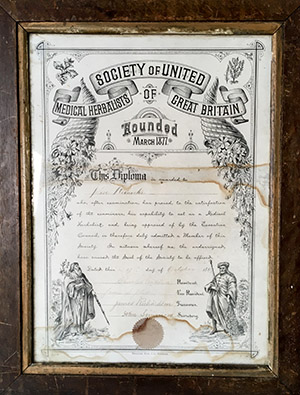 SOCIETY OF UNITED
MEDICAL HERBALISTS OF GREAT BRITAIN
Founded
MARCH 1877
This Diploma is awarded to
who after examination has proved to the satisfaction
of its examiners his capability to act as a Medical
Herbalist and being approved of by the Executive
Council is therefore duly admitted a Member of this
Society. In witness whereof we the undersigned
have caused the Seal of the Society to be affixed.
Dated this day of
President
Vice President
James Treasurer
Secretary